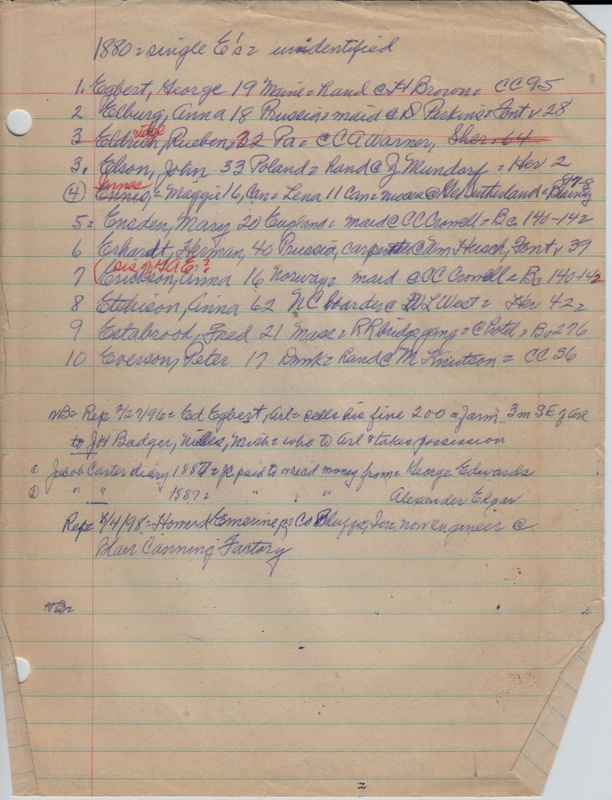 1880 = single E's = unidentified
1. Egbert, George 19 Maine = hand @ H Brown = CC 95
2 Elburg, Anna 18 Prussia = maid @ D Perkins = Font v 28
ridge
3 Eldrich, Rueben = 32 Pa = @ CA Warner, Sher 64
3. Elson, John 33 Poland = hand @ J Mundorf = Her 2
④ = Maggie 16, Can = Lena 11 Can = nieces @ Sutherland =
5 = Ensden, Mary 20 England = maid @ CC Crowell = Bc 140-142
6 Erhardt, Herman, 40 Prussia, carpenter @ Wm Husch, Font v 39
sis of HA E?
7 Erickson, Anna 16 Norway = maid @ CC Crowell = Bc 140-142
8 Etchison, Anna 62 NC boarder @ W L West = Her 422
9 Estabrook, Fred 21 Mass = RR bridge gang = @ hotel = Bc 276
10 Everson, Peter 17 Dnmk = hand @ M Knutson = CC 36
NB = Rep 2/27/96 = Ed Egbert, Arl = sells his fine 200 a farm 3m SE of Arl
to JH Badger, Niles, Mich = who to Arl & takes possession
Jacob Carter diary 1887 = JC paid to & recd money from = George Edwards
" " 1887 = " " " Alexander Elgar
Rep = 8/4/98 = Homer Emerine of Co Bluffs, Ia = now engineer @
Blair Canning Factory
NB =